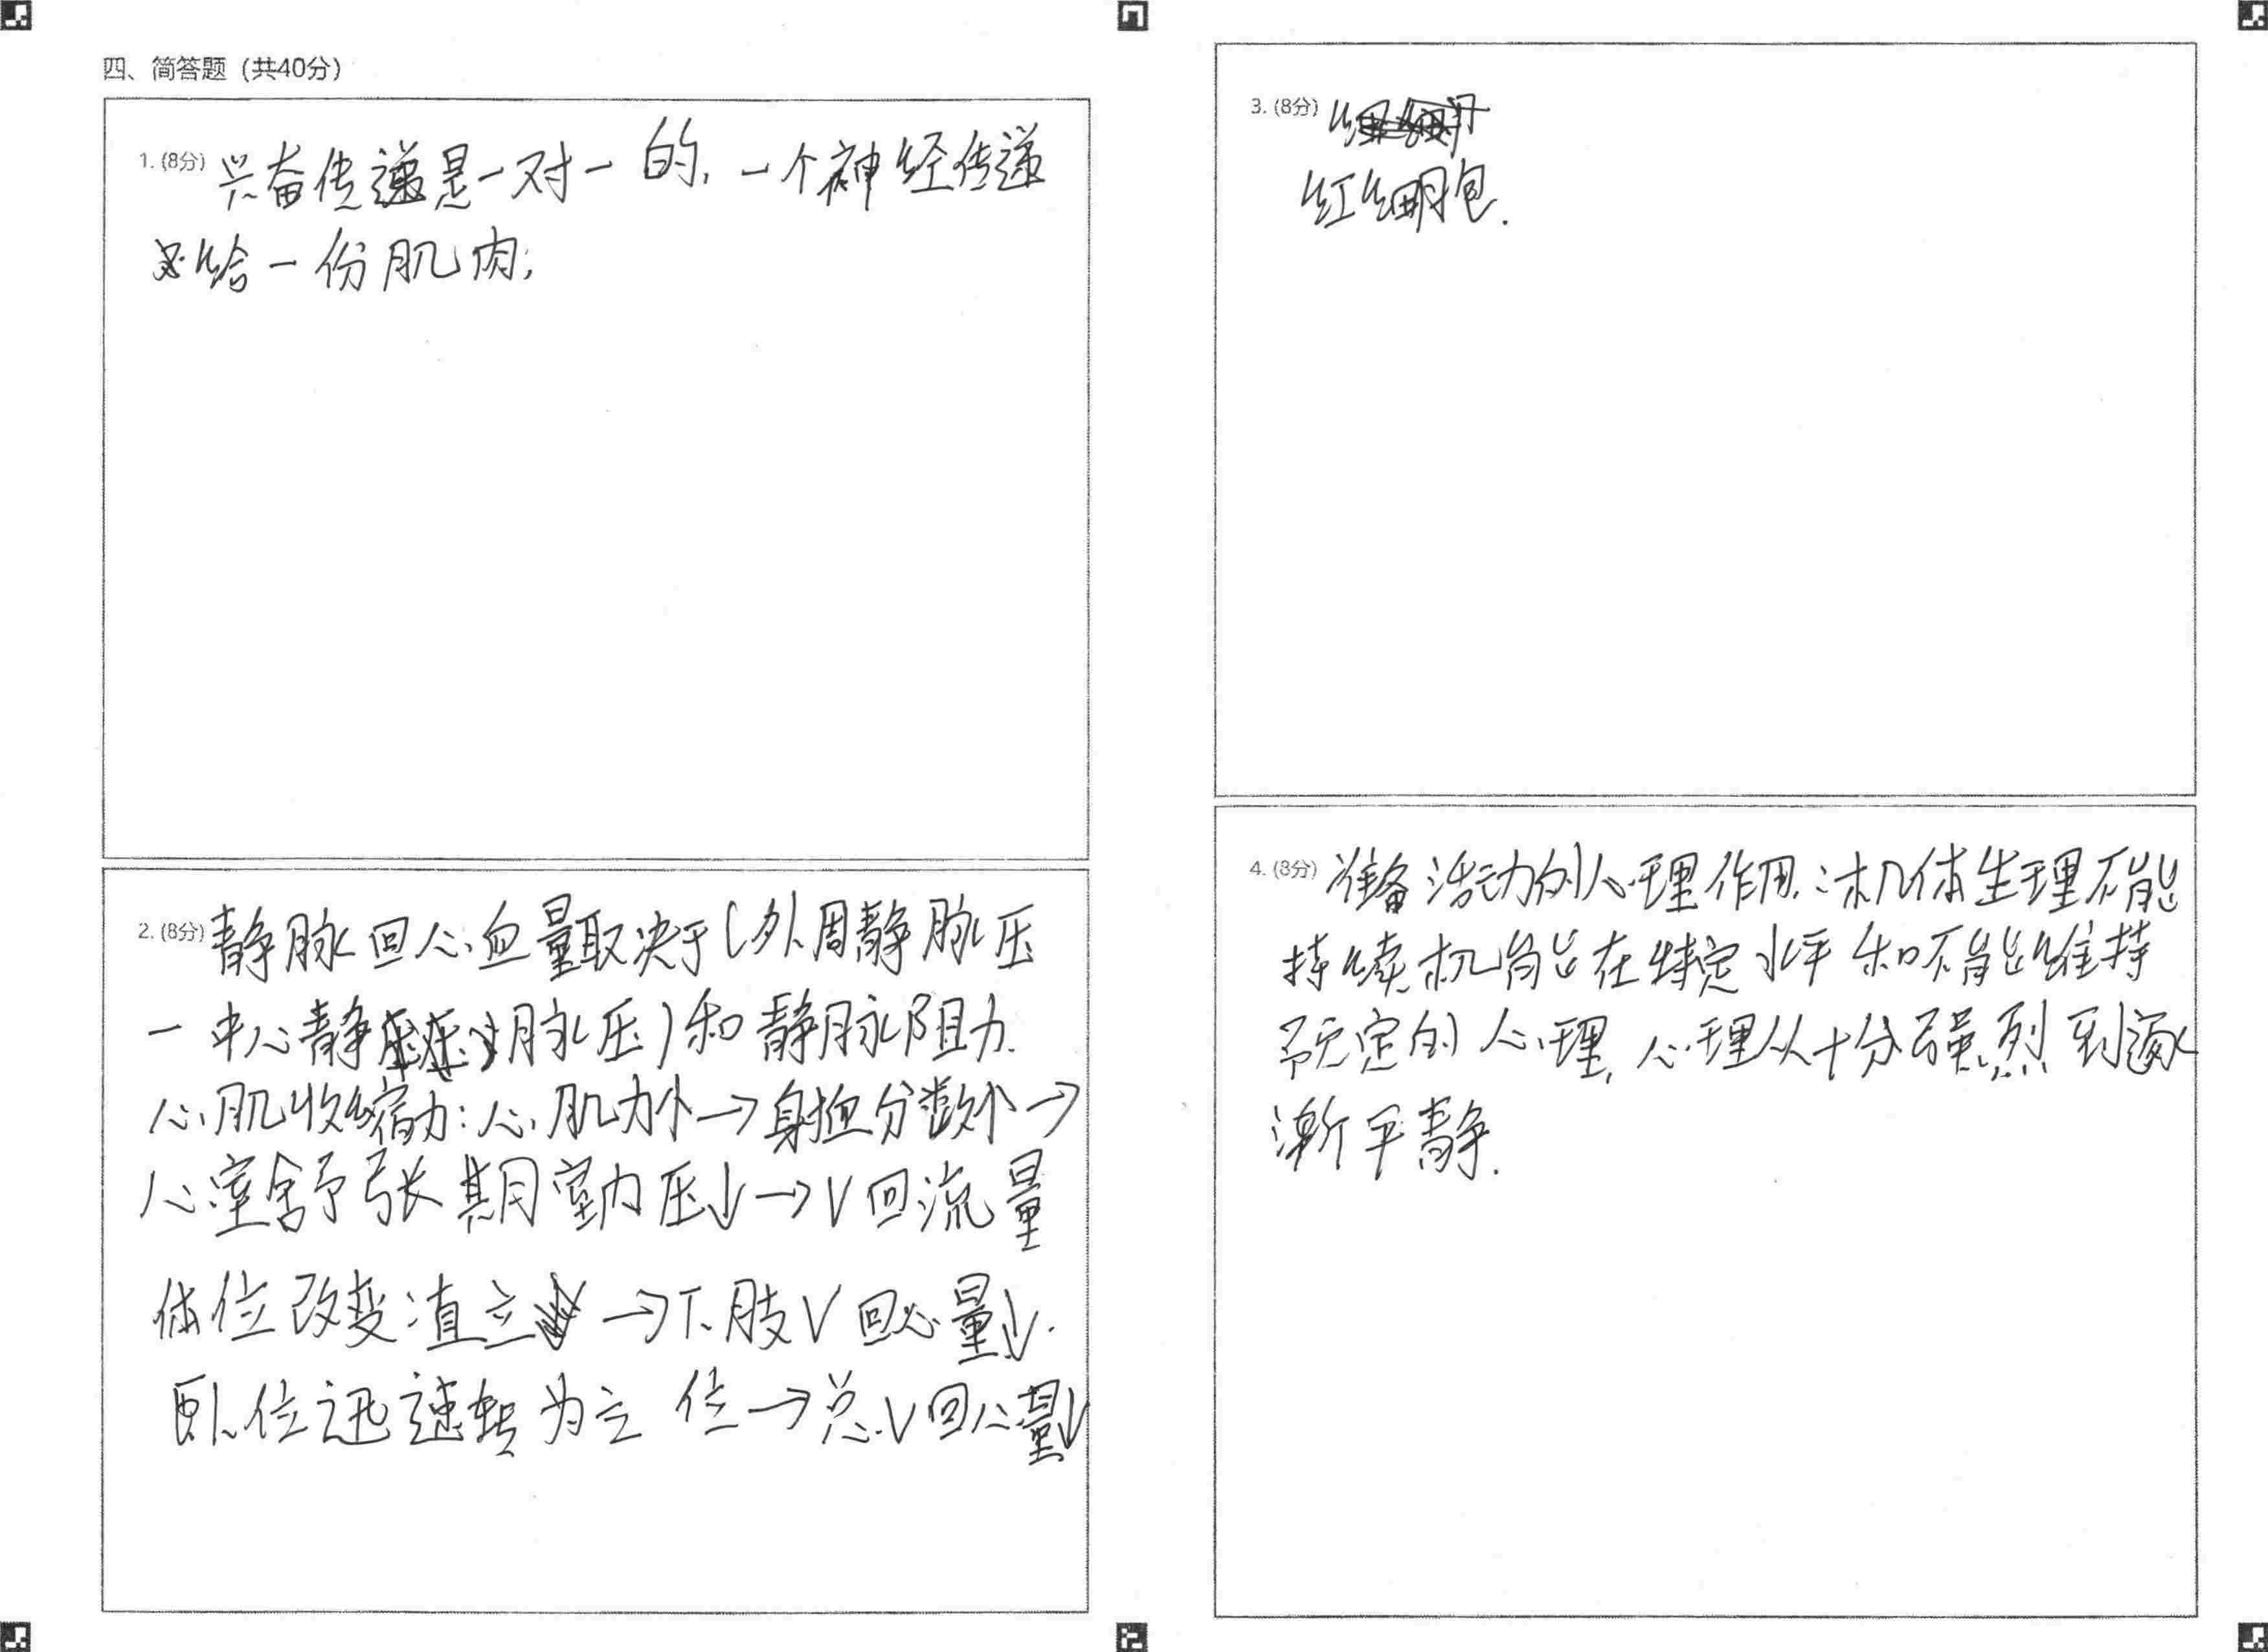 四、简答题（共40分）
1. (8分) 兴奋传递是一对一的，一个神经传递
给一份肌肉；
2. (8分) 静脉回心血量取决于（外周静脉压
－中心静脉压）和静脉阻力.
心肌收缩力：心肌力↑→射血分数↑→
心室舒张期室内压↓→V回流量
体位改变：直立→下肢V回心量↓.
卧位迅速转为立位→总V回心量↓
3. (8分)
红细胞.
4. (8分) 准备活动的心理作用：机体生理不能
持续机能在特定水平和不能维持
预定的心理，心理从十分强烈到逐
渐平静.